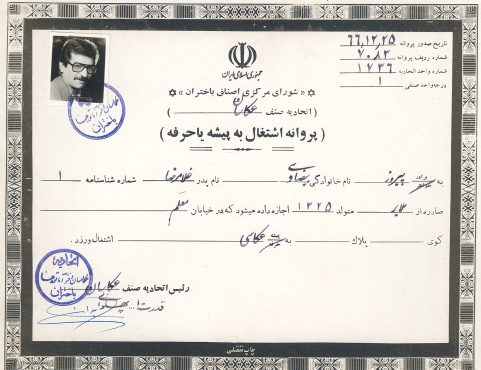 تاریخ صدور پروانه ۶۶,۱۲,۲۵
شماره ردیف پروانه ۷۰۸۳
شماره واحد اتحادیه ۱۷۳۶
درجه واحد صنفی ۱
جمهوری اسلامی ایران
« شورای مرکزی اصناف باختران »
( اتحادیه صنف عکاسان )
( پروانه اشتغال به پیشه یا حرفه )
به برادر پیروز نام خانوادگی نام پدر غلامرضا شماره شناسنامه ۱
صادره از متولد ۱۳۲۵ اجازه داده میشود که در خیابان معلم
کوی پلاک به عکاسی اشتغال ورزد.
رئیس اتحادیه صنف عکاسان
اتحادیه
باختران
باختران
چاپ تفضلی